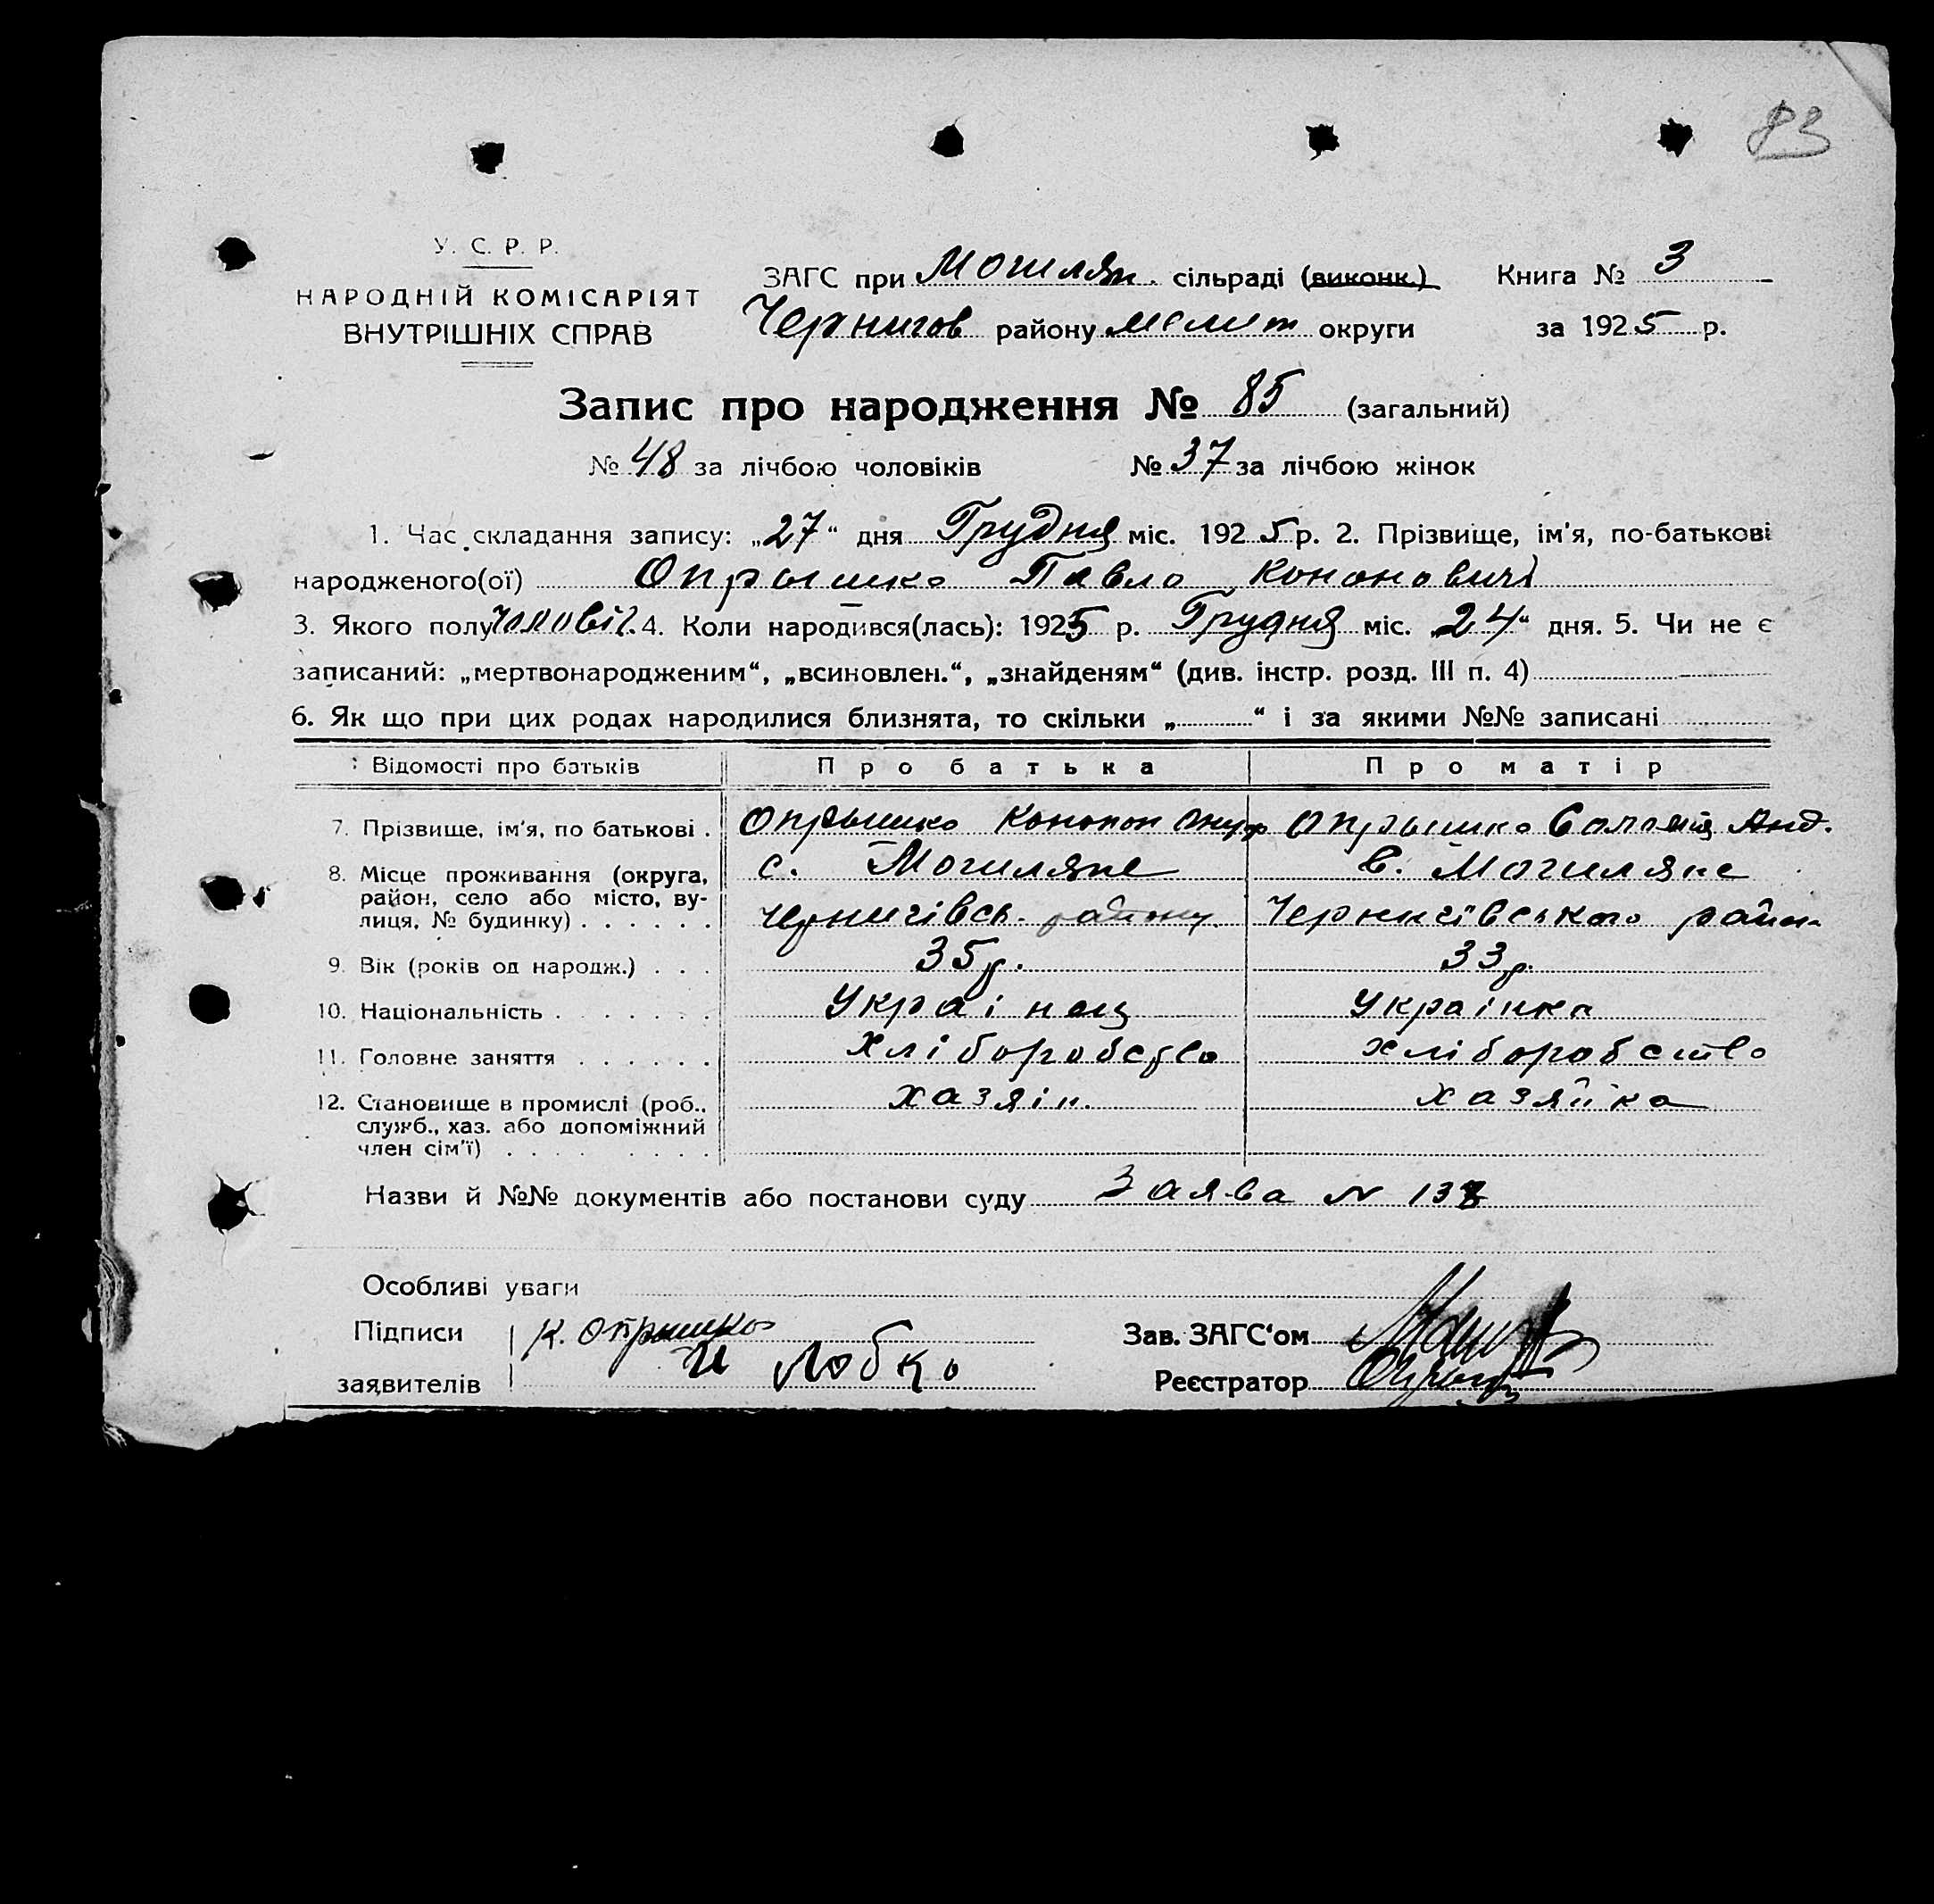 83
У. С. Р. Р.
НАРОДНІЙ КОМІСАРІЯТ
ВНУТРІШНІХ СПРАВ
ЗАГС при Могилян. сільраді (виконк.) Книга № 3
Чернигов району Мелит округи за 1925 р.
Запис про народження № 85 (загальний)
№ 48 за лічбою чоловіків № 37 за лічбою жінок
1. Час складання запису: „27“ дня Грудня міс. 1925 р. 2. Прізвище, ім'я, по-батькові
народженого(ої) Опрышко Павло Кононович
3. Якого полу чоловіч. 4. Коли народився(лась): 1925 р. Грудня міс. „24“ дня. 5. Чи не є
записаний: „мертвонародженим“, „всиновлен.“, „знайденям“ (див. інстр. розд. III п. 4)
6. Як що при цих родах народилися близнята, то скільки „ “ і за якими №№ записані
Відомості про батьків Про батька Про матір
7. Прізвище, ім'я, по батькові . Опрышко Кононон Ануф Опрышко Соломія Анд.
8. Місце проживання (округа, с. Могиляне с. Могиляне
район, село або місто, ву-
лиця, № будинку) . . . . . . Чернигівськ. району Чернигівського район
9. Вік (років од народж.) . . . 35 р. 33 р.
10. Національність . . . . . . . Украінец Украінка
11. Головне заняття . . . . . . Хліборобство хліборобство
12. Становище в промислі (роб., хазяін. хазяйка
служб., хаз. або допоміжний
член сім'ї) . . . . . . . . .
Назви й №№ документів або постанови суду Заява N 138
Особливі уваги
Підписи К. Опрышко Зав. ЗАГС‘ом
заявителів И Лобко Реєстратор